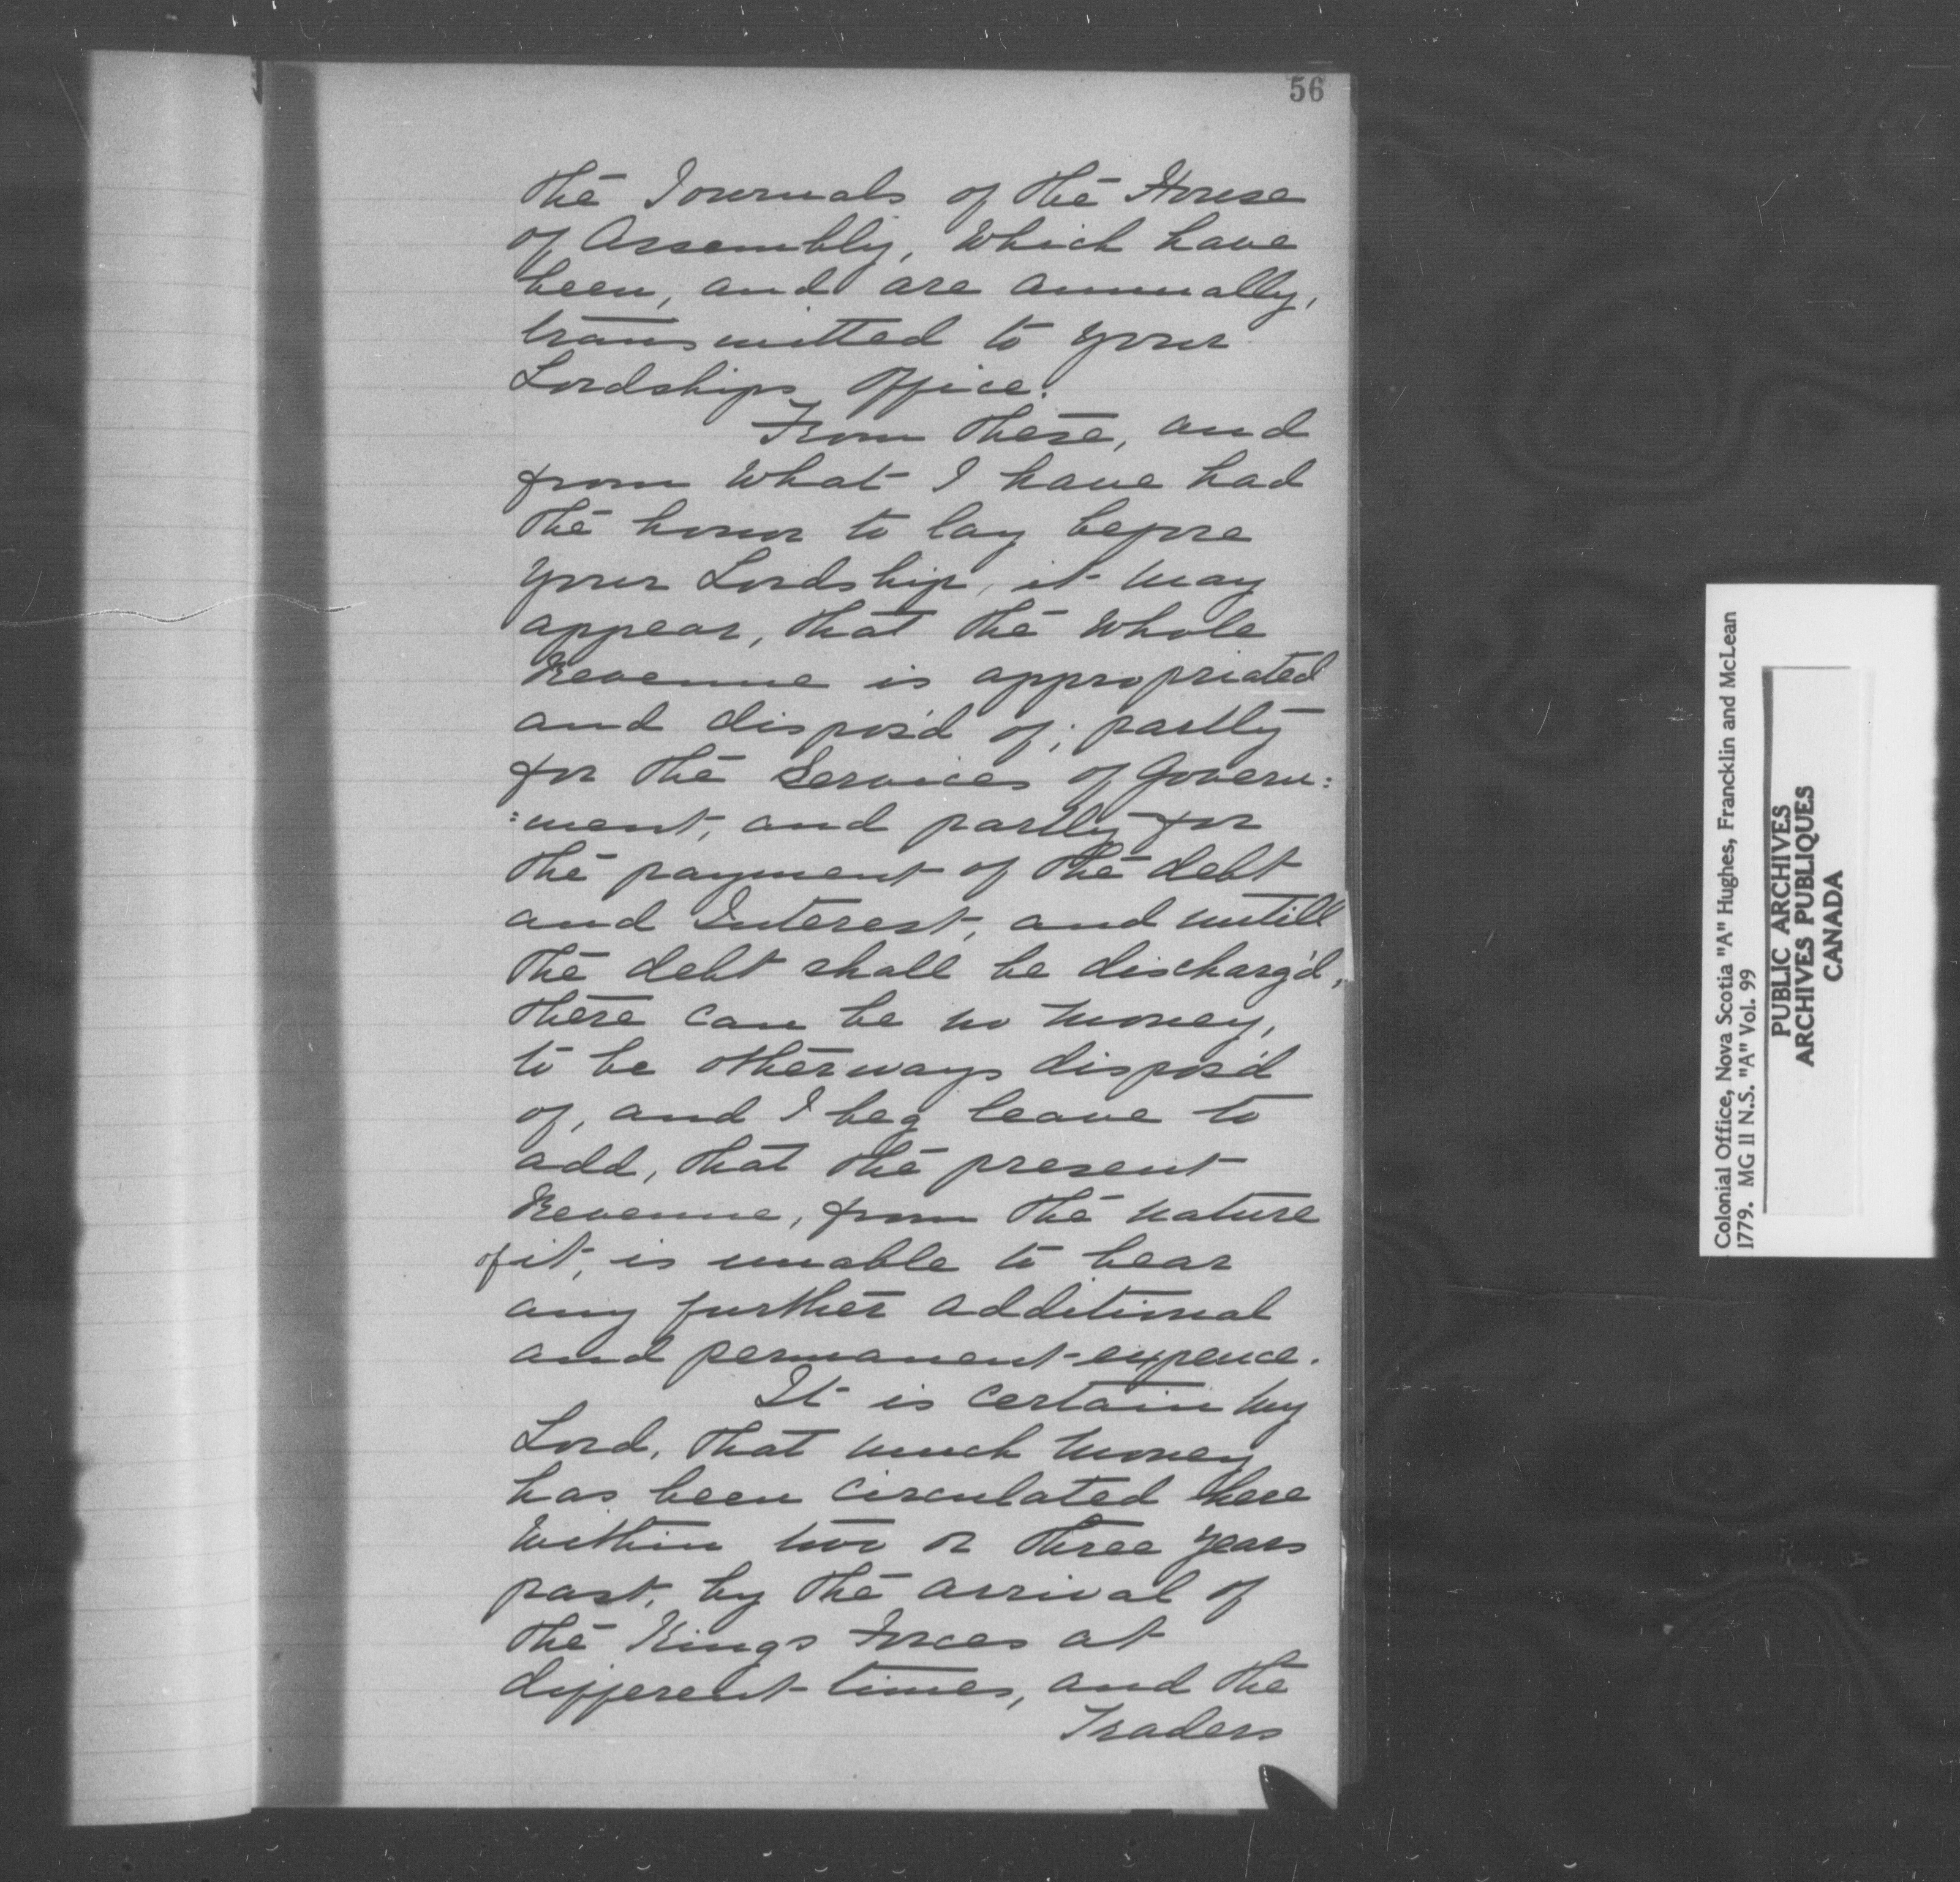 56
the Journals of the House
of Assembly, Which have
been, and are annually,
transmitted to your
Lordships Office.
From these, and
from What I have had
the honor to lay before
your Lordship, it may
appear, that the Whole
Revenue is appropriated
and dispos'd of; partly
for the Services of Govern:
:ment, and partly for
the payment of the debt
and Interest, and untill
the debt shall be discharg'd,
there can be no Money,
to be otherways dispos'd
of, and I beg leave to
add, that the present
Revenue, from the nature
of it, is unable to bear
any further additional
and permanent expence.
It is certain My
Lord, that much Money
has been circulated here
Within two or three years
past, by the arrival of
the Kings Forces at
different times, and the
Traders
Colonial Office, Nova Scotia "A" Hughes, Francklin and McLean
1779. MG 11 N.S. "A" Vol. 99
PUBLIC ARCHIVES
ARCHIVES PUBLIQUES
CANADA